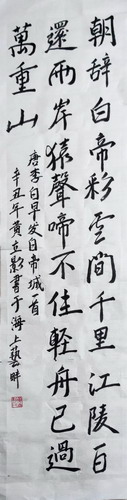 朝辞白帝彩雲間千里江陵百
還两岸猿聲啼不住軽舟已過
萬重山
唐李白早发白帝城一首
辛丑年黄立影書于海上藝畔